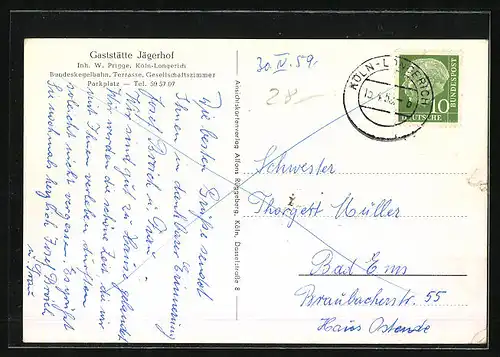 Gaststätte Jägerhof
Inh. W. Prigge, Köln-Longerich
Bundeskegelbahn, Terrasse, Gesellschaftszimmer
Parkplatz — Tel. 59 57 07
Die besten Grüße sendet
Ihnen in dankbarer Erinnerung
Josef Broich u. Frau.
Wir sind gut zu Hause gelandet
Wir werden die schöne Zeit die wir
mit Ihnen verleben durften
nicht vergessen. Es grüßt
Sie nochmals herzlich Josef Broich
u. Frau
Ansichtskartenverlag Alfons Ryggeberg, Köln, Dasselstraße 8
30. IV. 59.
28.-
KÖLN-LONGERICH
10
DEUTSCHE
BUNDESPOST
Schwester
Thorgett Müller
Bad Ems
Braubacherstr. 55
Haus Ostende